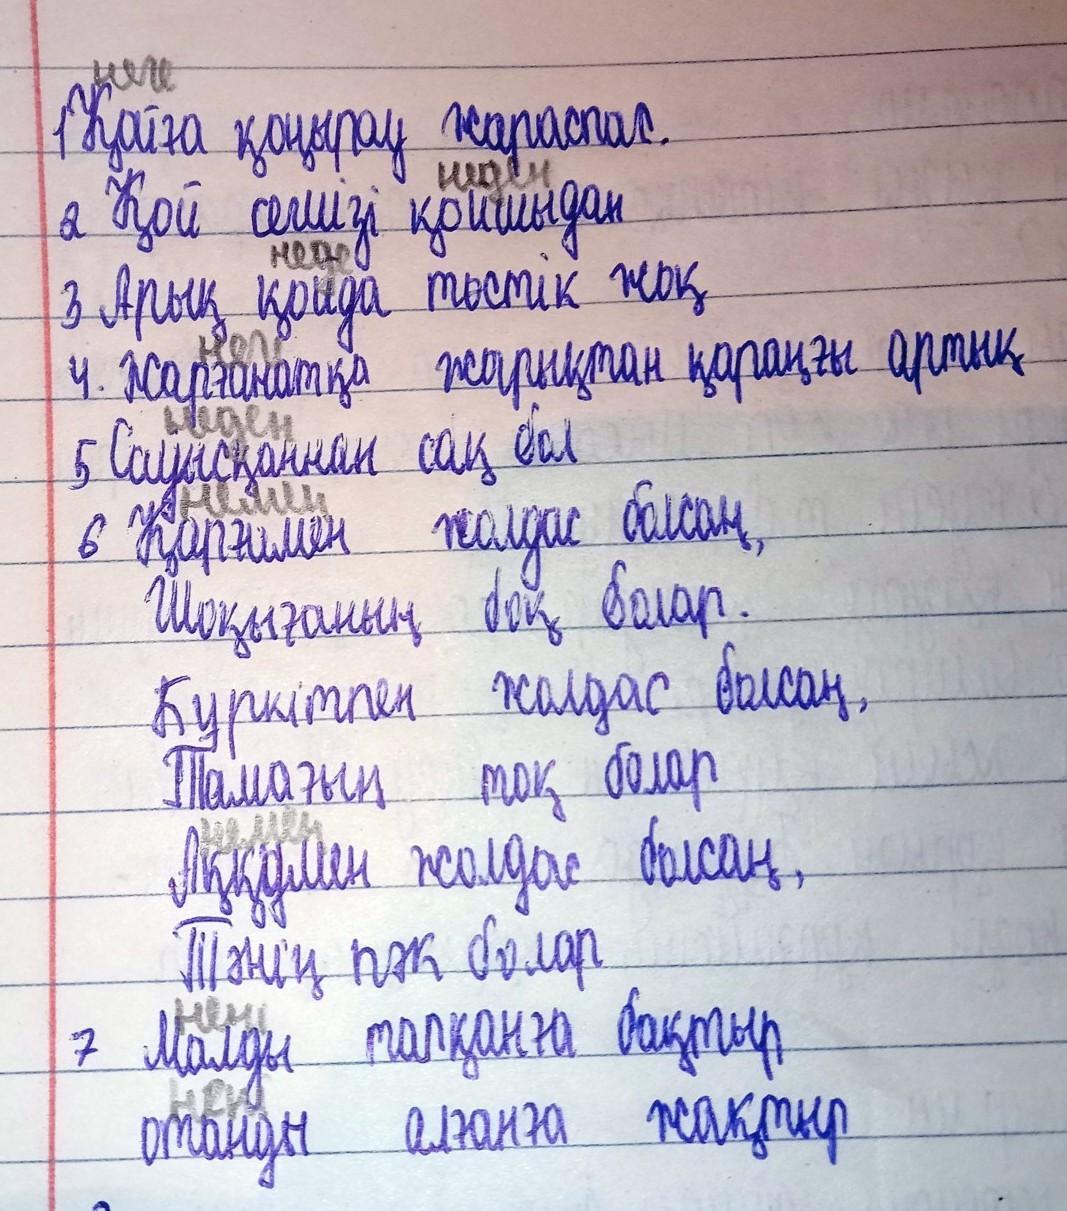 неге
1 Қойға қоңырау жараспас.
неден
2 Қой семізі қойшыдан
неде
3 Арық қойда төстік жоқ
неге
4. Жарғанатқа жарықтан қараңғы артық
неден
5 Сауысқаннан сақ бол
немен
6 Қарғамен жолдас болсаң,
Шоқығаның боқ болар.
Күркітпен жолдас болсаң,
Тамағың тоқ болар
немен
Аққумен жолдас болсаң,
Тәнің пәк болар
нені
7 Малды тапқанға бақтыр
нені
отынды алғанға жақтыр